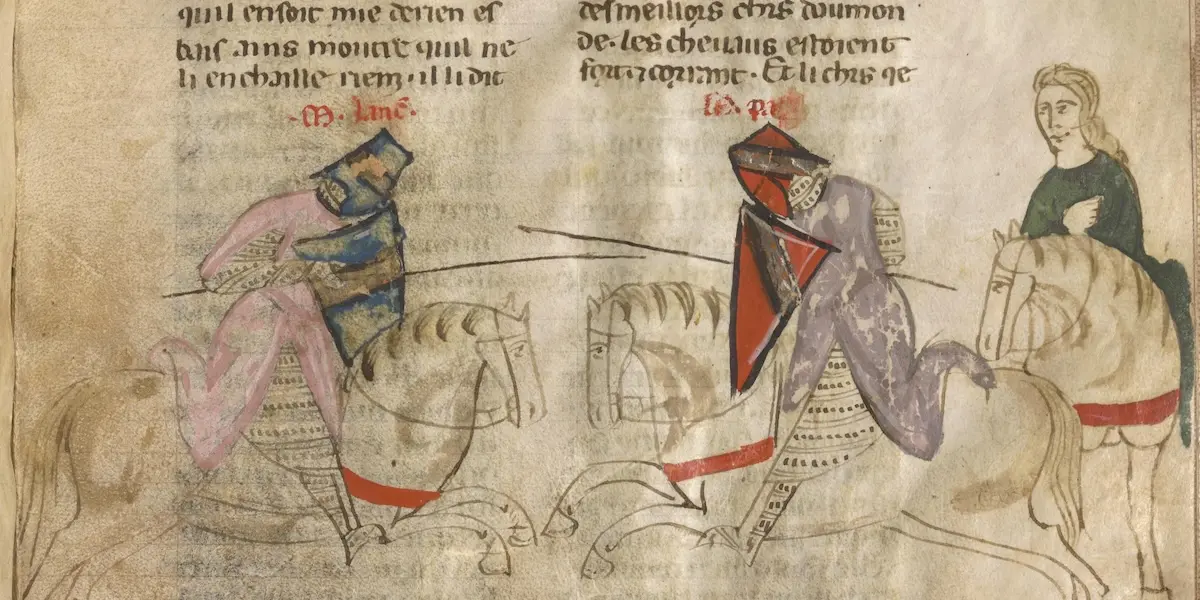 quil ensoit mie derien es
bais ains moutre quil ne
li enchaille riem . il li dit
desmeillors chrs doumon
de . les cheuaus estoient
fort corrant . Et li chrs qe
.M. lanc.